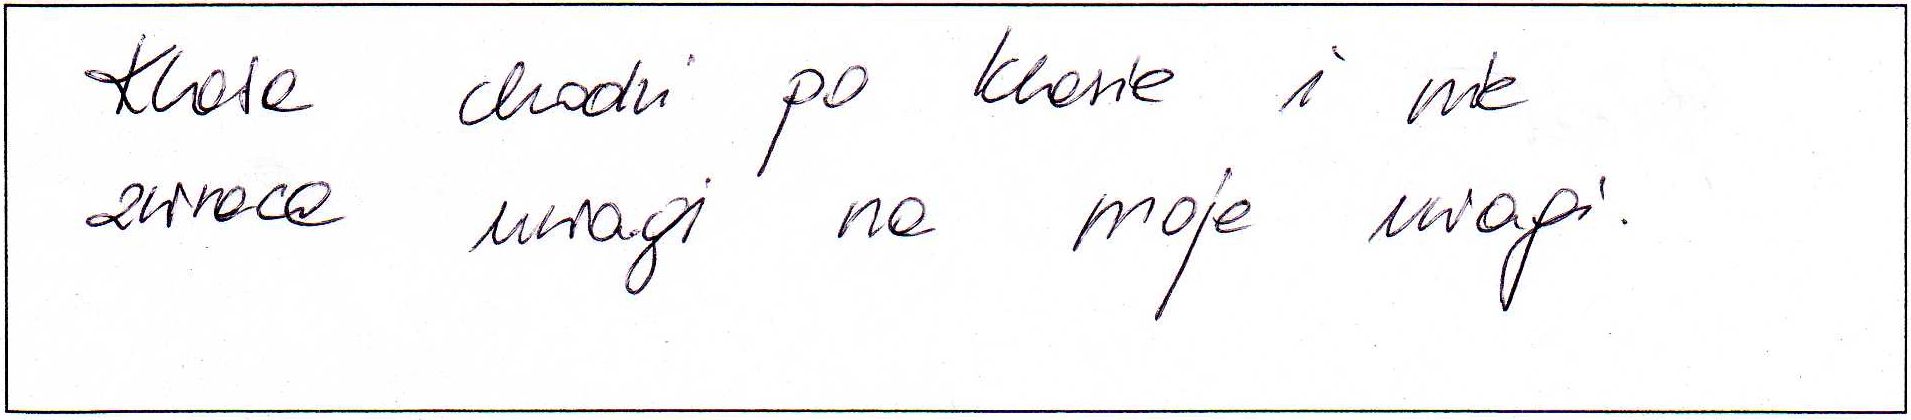 Klasa chodzi po klasie i nie
zwraca uwagi na moje uwagi.